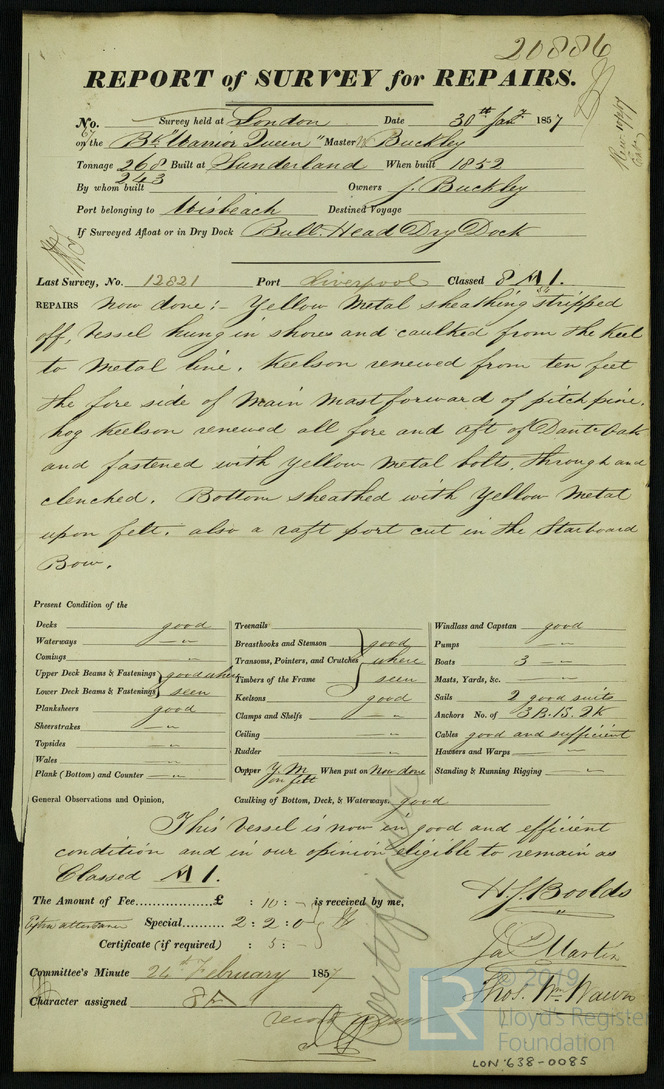 20886
REPORT of SURVEY for REPAIRS.
No. 67 Survey held at London Date 30th Jany 1857
on the Bk "Warrior Queen" Master W Buckley
Tonnage 268 243 Built at Sunderland When built 1852
By whom built Owners J. Buckley
Port belonging to Wisbeach Destined Voyage
If Surveyed Afloat or in Dry Dock Bull Head Dry Dock
Last Survey, No. 12821 Port Liverpool Classed 8 A 1.
REPAIRS now done :- Yellow Metal sheathing stripped
off, Vessel hung in shores and caulked from the Keel
to Metal line. Keelson renewed from ten feet
the fore side of Main Mast forward of pitch pine.
hog Keelson renewed all fore and aft of Dantc Oak
and fastened with Yellow Metal bolts, through and
clenched. Bottom sheathed with Yellow Metal
upon felt. also a raft port cut in the Starboard
Bow.
Present Condition of the
Decks good
Waterways —"—
Comings —"—
Upper Deck Beams & Fastenings } good where
Lower Deck Beams & Fastenings } seen
Planksheers good
Sheerstrakes —"—
Topsides —"—
Wales —"—
Plank (Bottom) and Counter —"—
Treenails
Breasthooks and Stemson good
Transoms, Pointers, and Crutches where
Timbers of the Frame seen
Keelsons good
Clamps and Shelfs —"—
Ceiling —"—
Rudder —"—
Copper Y M on felt When put on Now done
Windlass and Capstan good
Pumps —"—
Boats 3 —"—
Masts, Yards, &c. —"—
Sails 2 good suits
Anchors No. of 3 B. 1 S. 2 K
Cables good and sufficient
Hawsers and Warps —"—
Standing & Running Rigging —"—
General Observations and Opinion, Caulking of Bottom, Deck, & Waterways. good
This Vessel is now in good and efficient
condition and in our opinion eligible to remain as
Classed A 1.
The Amount of Fee £ : 10 : - is received by me,
Extra attendance Special 2 : 2 : 0
Certificate (if required) : 5 : -
H. J. Boolds
Jas Martin
Thos. Wm Wawn
Committee's Minute 24th February 1857
Character assigned 8 A
Certificate
© 2019
LR
Lloyd's Register
Foundation
LON 638-0085